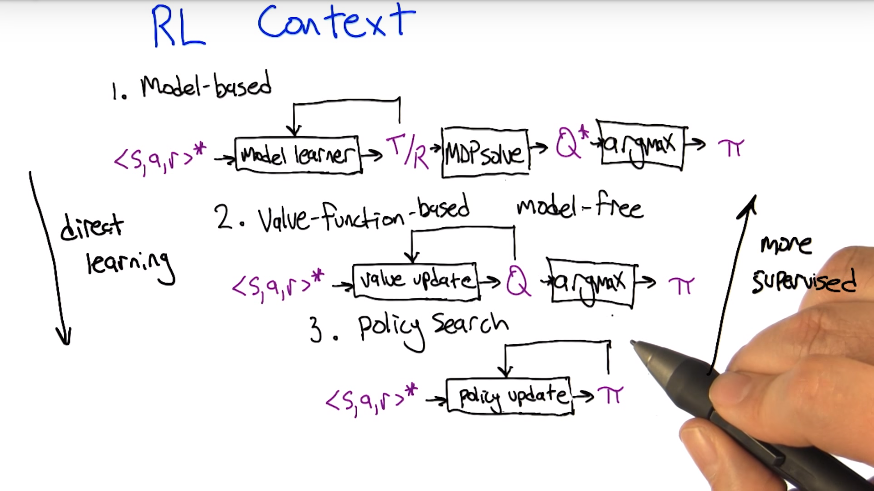 RL Context
1. Model-based
<s,a,r>* → model learner → T/R → MDP solve → Q* → argmax → π
direct learning
2. Value-function-based model-free
<s,a,r>* → value update → Q → argmax → π
more supervised
3. policy search
<s,a,r>* → policy update → π